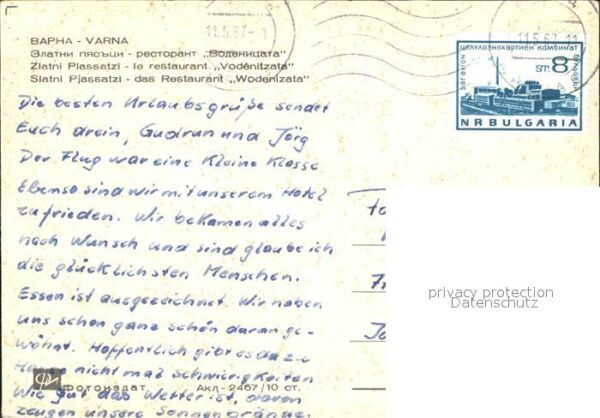 11.5.67-11
11.5.67 11
ВАРНА - VARNA
Златни пясъци - ресторант „Воденицата"
Zlatni Piassatzi - le restaurant „Vodénitzata"
Slatni Pjassatzi - das Restaurant „Wodenizata"
целулознохартиен комбинат
ST. 8
NR BULGARIA
Die besten Urlaubsgrüße sendet
Euch drein, Gudrun und Jörg
Der Flug war eine Kleine Klasse
Ebenso sind wir mit unserem Hotel
zufrieden. Wir bekamen alles
nach Wunsch und sind glaube ich
die glücklichsten Menschen.
Essen ist ausgezeichnet. Wir haben
uns schon ganz schön daran ge-
wöhnt. Hoffentlich gibt es da zu
Hause nicht mal Schwirigkeiten
Wie gut das Wetter ist, davon
zeugen unsere Sonnenbrände.
Фотоиздат Акл - 2467/10 ст.
privacy protection
Datenschutz